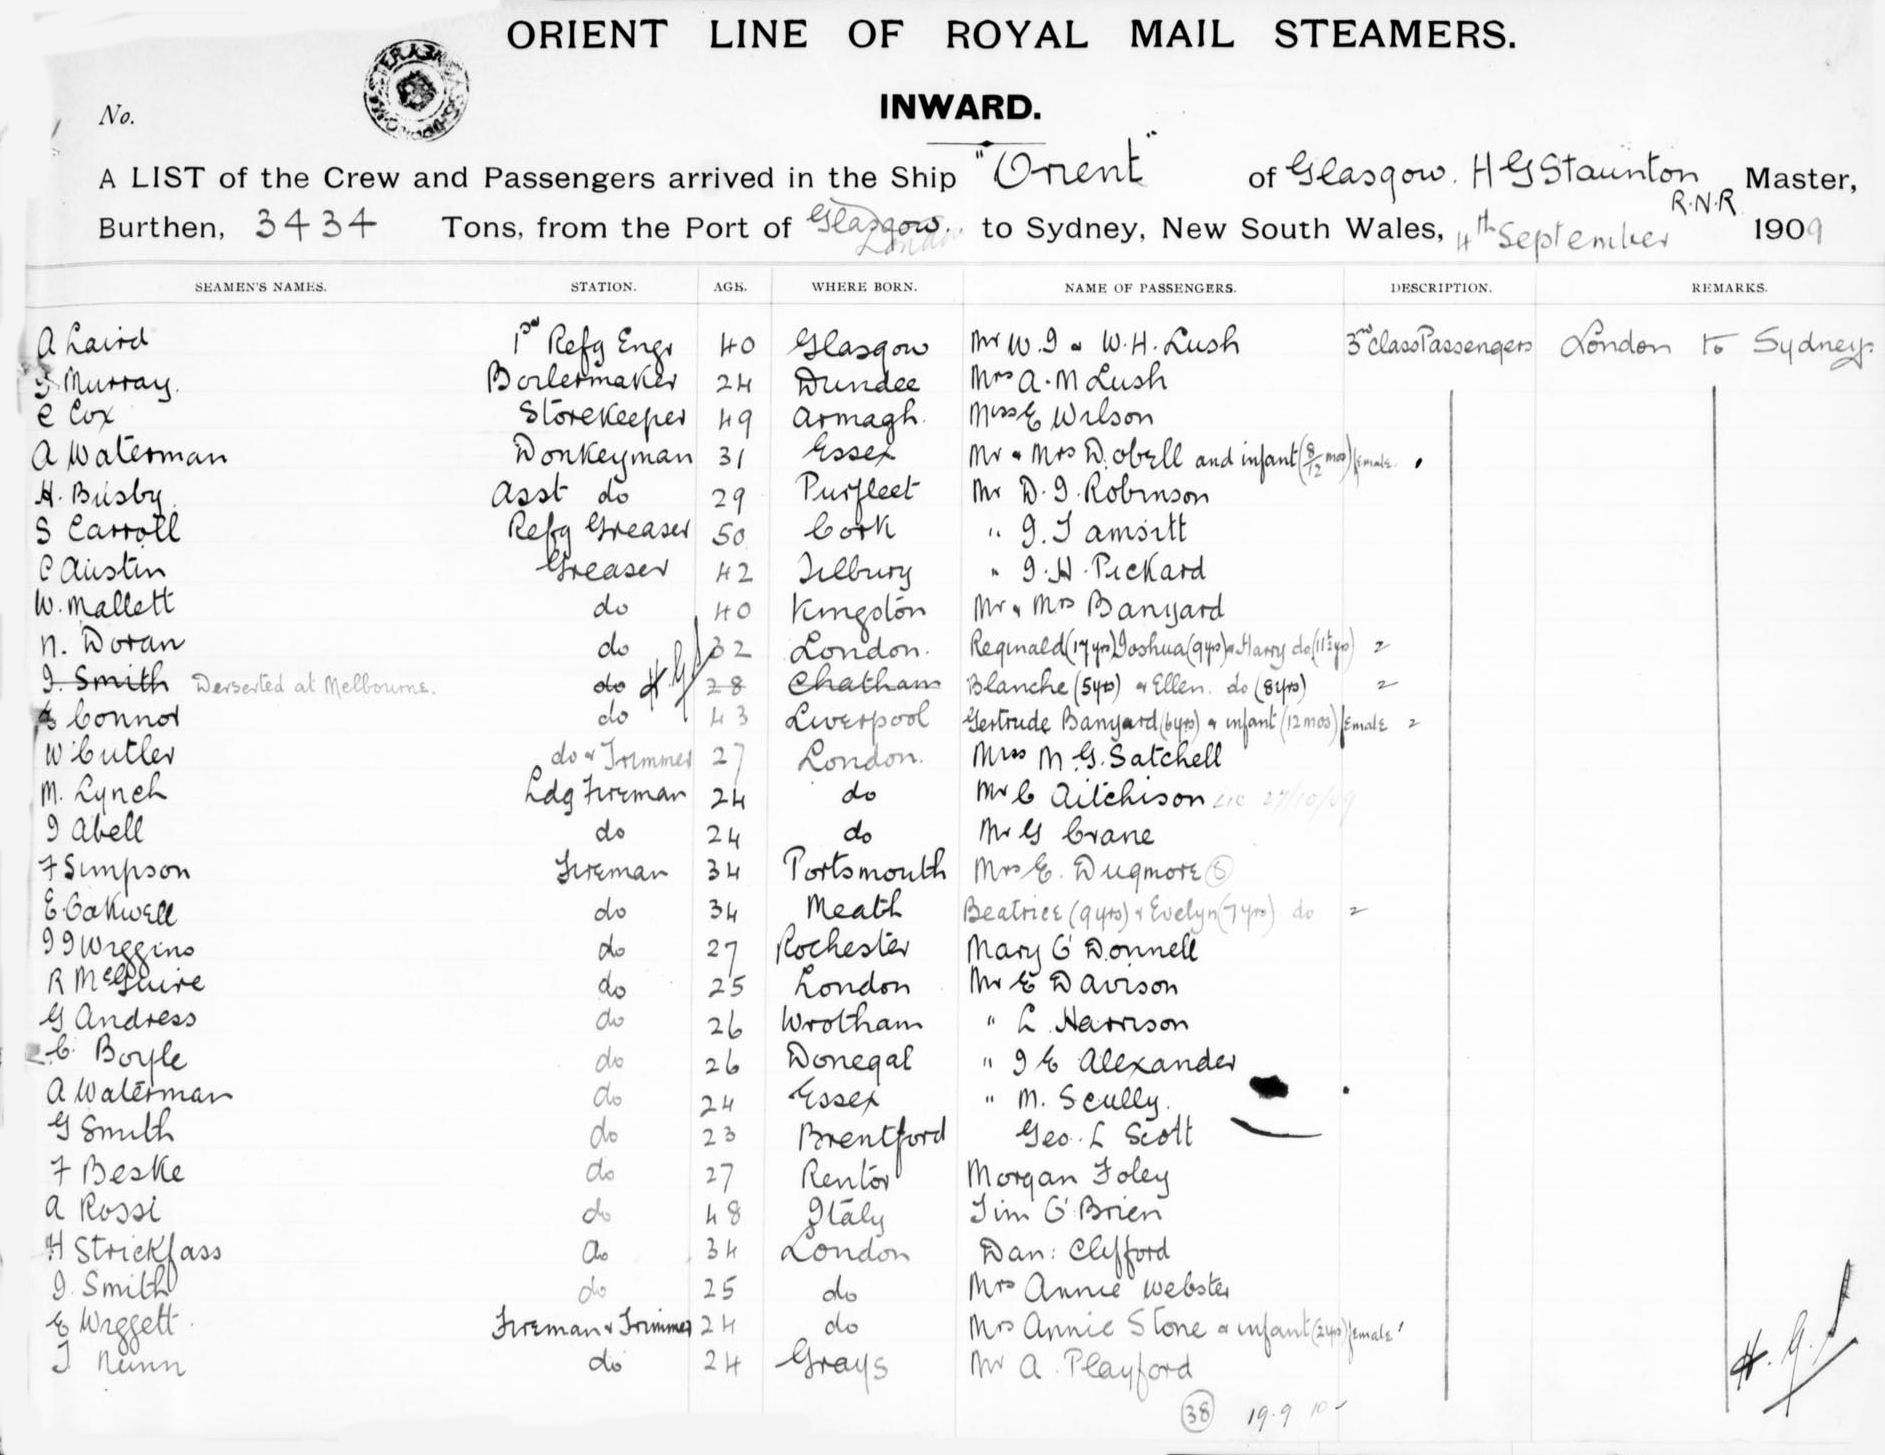 ORIENT LINE OF ROYAL MAIL STEAMERS.
INWARD.
No.
A LIST of the Crew and Passengers arrived in the Ship "Orient" of Glasgow. H G Staunton R.N.R Master,
Burthen, 3434 Tons, from the Port of Glasgow London to Sydney, New South Wales, 4th September 1909
SEAMEN'S NAMES. STATION. AGE. WHERE BORN. NAME OF PASSENGERS. DESCRIPTION. REMARKS.
A Laird 1st Refg Engr 40 Glasgow Mr W.J & W.H. Lush 3rd Class Passengers London to Sydney
Murray. Boilermaker 24 Dundee Mrs A. M Lush
C Cox Storekeeper 49 Armagh. Miss E Wilson
A Waterman Donkeyman 31 Essex Mr & Mrs Dobell and infant (8/12 mos) female
H. Busby. Asst do 29 Purfleet Mr D. J. Robinson
S Carroll Refg Greaser 50 Cork " J. Tamsitt
C Austin Greaser 42 Tilbury " J. H. Pickard
W. Mallett do 40 Kingston Mr & Mrs Banyard
N. Doran do 32 London. Reginald (17yrs) Joshua (9yrs) & Harry do (11½yrs) 2
J. Smith Derserted at Melbourne. do 28 Chatham Blanche (5yrs) & Ellen. do (8yrs) 2
Connor do 43 Liverpool Gertrude Banyard (6yrs) & infant (12mos) female 2
W Cutler do & Trimmer 27 London. Miss M. G. Satchell
M. Lynch Ldg Fireman 24 do Mr C Aitchison 27/10/09
J Abell do 24 do Mr G Crane
F Simpson Fireman 34 Portsmouth Mrs E. Dugmore S
E. Oakwell do 34 Meath Beatrice (9yrs) & Evelyn (7yrs) do 2
J J Wiggins do 27 Rochester Mary O'Donnell
R McGuire do 25 London Mr E Davison
G Andress do 26 Wrotham " L. Harrison
C. Boyle do 26 Donegal " J E Alexander
A Waterman do 24 Essex " M. Scully.
G Smith do 23 Brentford Geo. L Scott
F Beske do 27 Morgan Foley
A Rossi do 48 Italy Tim O'Brien
H Strickfass do 34 London Dan: Clifford
J. Smith do 25 do Mrs Annie Webster
E Wiggett. Fireman & Trimmer 24 do Mrs Annie Stone & infant (2yrs) female
T Nunn do 24 Grays Mr A. Playford
38 19.9